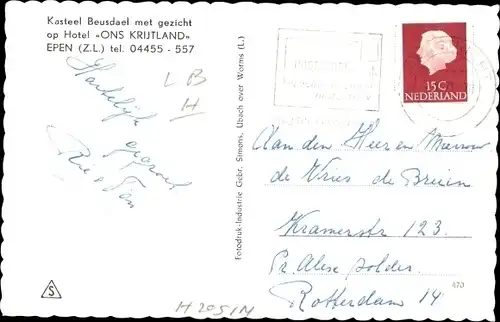 Kasteel Beusdael met gezicht
op Hotel «ONS KRIJTLAND»
EPEN (Z.L.) tel. 04455 - 557
Hartelijk
gegroet
Ria en Ton
L B
H
Fotodruk-Industrie Gebr. Simons, Ubach over Worms (L.)
15 C
NEDERLAND
Aan den Heer en Mevrouw
de Vries de Bruin
Kramerstr 123.
Pr. Alex. polder.
Rotterdam 14
470
S
H 2051M